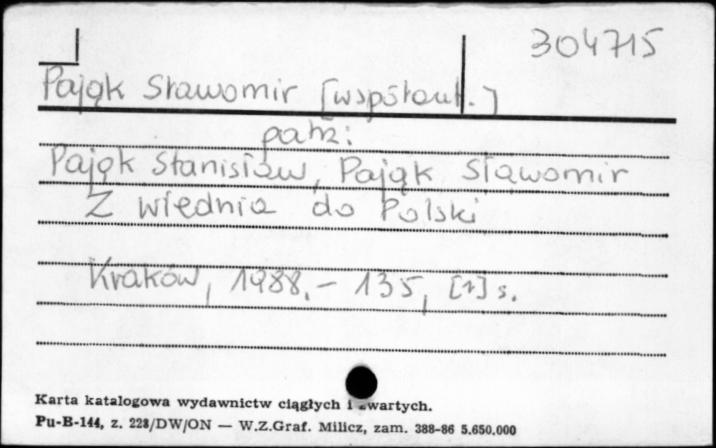 304715
Pająk Sławomir [współaut.]
patrz:
Pająk Stanisław, Pająk Sławomir
Z Wiednia do Polski
Kraków, 1988. – 135, [1] s.
Karta katalogowa wydawnictw ciągłych i zwartych.
Pu-B-144, z. 228/DW/ON — W.Z.Graf. Milicz, zam. 388-86 5.650.000